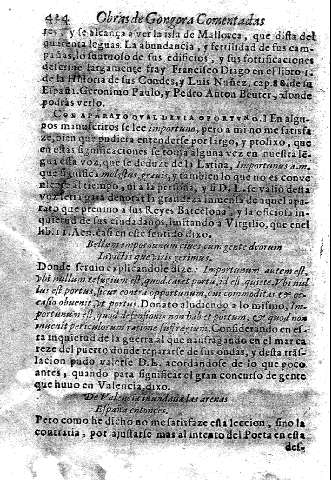 424 Obras de Gongora Comentadas
y se alcança a ver la isla de Mallorca, que dista del
quinenta leguas. La abundancia, y fertilidad de sus cam-
pañas, lo suntuoso de sus edificios, y sus fortificaciones
descriue largamente fray Francisco Diago en el libro 1.
de la Historia de sus Condes, y Luis Nuñez, cap. 88. de su
España, Geronimo Paulo, y Pedro Anton Beuter, donde
podrás verlo.
CON APARATO QVAL DEVIA OPORTVNO.] En algu-
nos manuscritos se lee importuno, pero a mi no me satisfa
ze, bien que pudiera entenderse por largo, y prolixo, que
en estas significaciones se toma alguna vez en nuestra lé
gua esta voz, que se deduze de la Latina, Importunus a.m.
que significa molestus, grauis, y tambien lo que no es conue
al tiempo, ni a la persona, y si D. L. se valió desta
voz seria para denotar la grandeza inmensa de aquel apa-
rato que preuino a sus Reyes Barcelona, y la oficiosa in-
quietud de sus ciudadanos, imitando a Virgilio, que en el
lib. 11. Aen. casi en este sentido dixo.
Bellum importunum ciues cum gente deorum
Inuictis que viris gerimus.
Donde Seruio explicandole dize: Importunum autem est,
vbi nullum refugium est, quod caret portu, id est quiete. Vbi nul
lus est portus, sicut contra opportunum, cui commoditas & oc-
casio obuenit, vt portus. Donato aludiendo a lo mismo, Im-
portunum est, quod defensionis non habet portum, & quod non
inuenit periculorum ratione suffugium. Considerando en es-
ta inquietud de la guerra al que naufragando en el mar ca
reze del puerto donde repararse de sus ondas, y desta tras-
lacion pudo valerse D. L. acordandose de lo que poco
antes, quando para significar el gran concurso de gente
que huuo en Valencia, dixo.
De Valencia inundaua las arenas
España entonces.
Pero como he dicho no me satisfaze esta leccion, sino la
contraria, por ajustarse mas al intento del Poeta en esta
des-